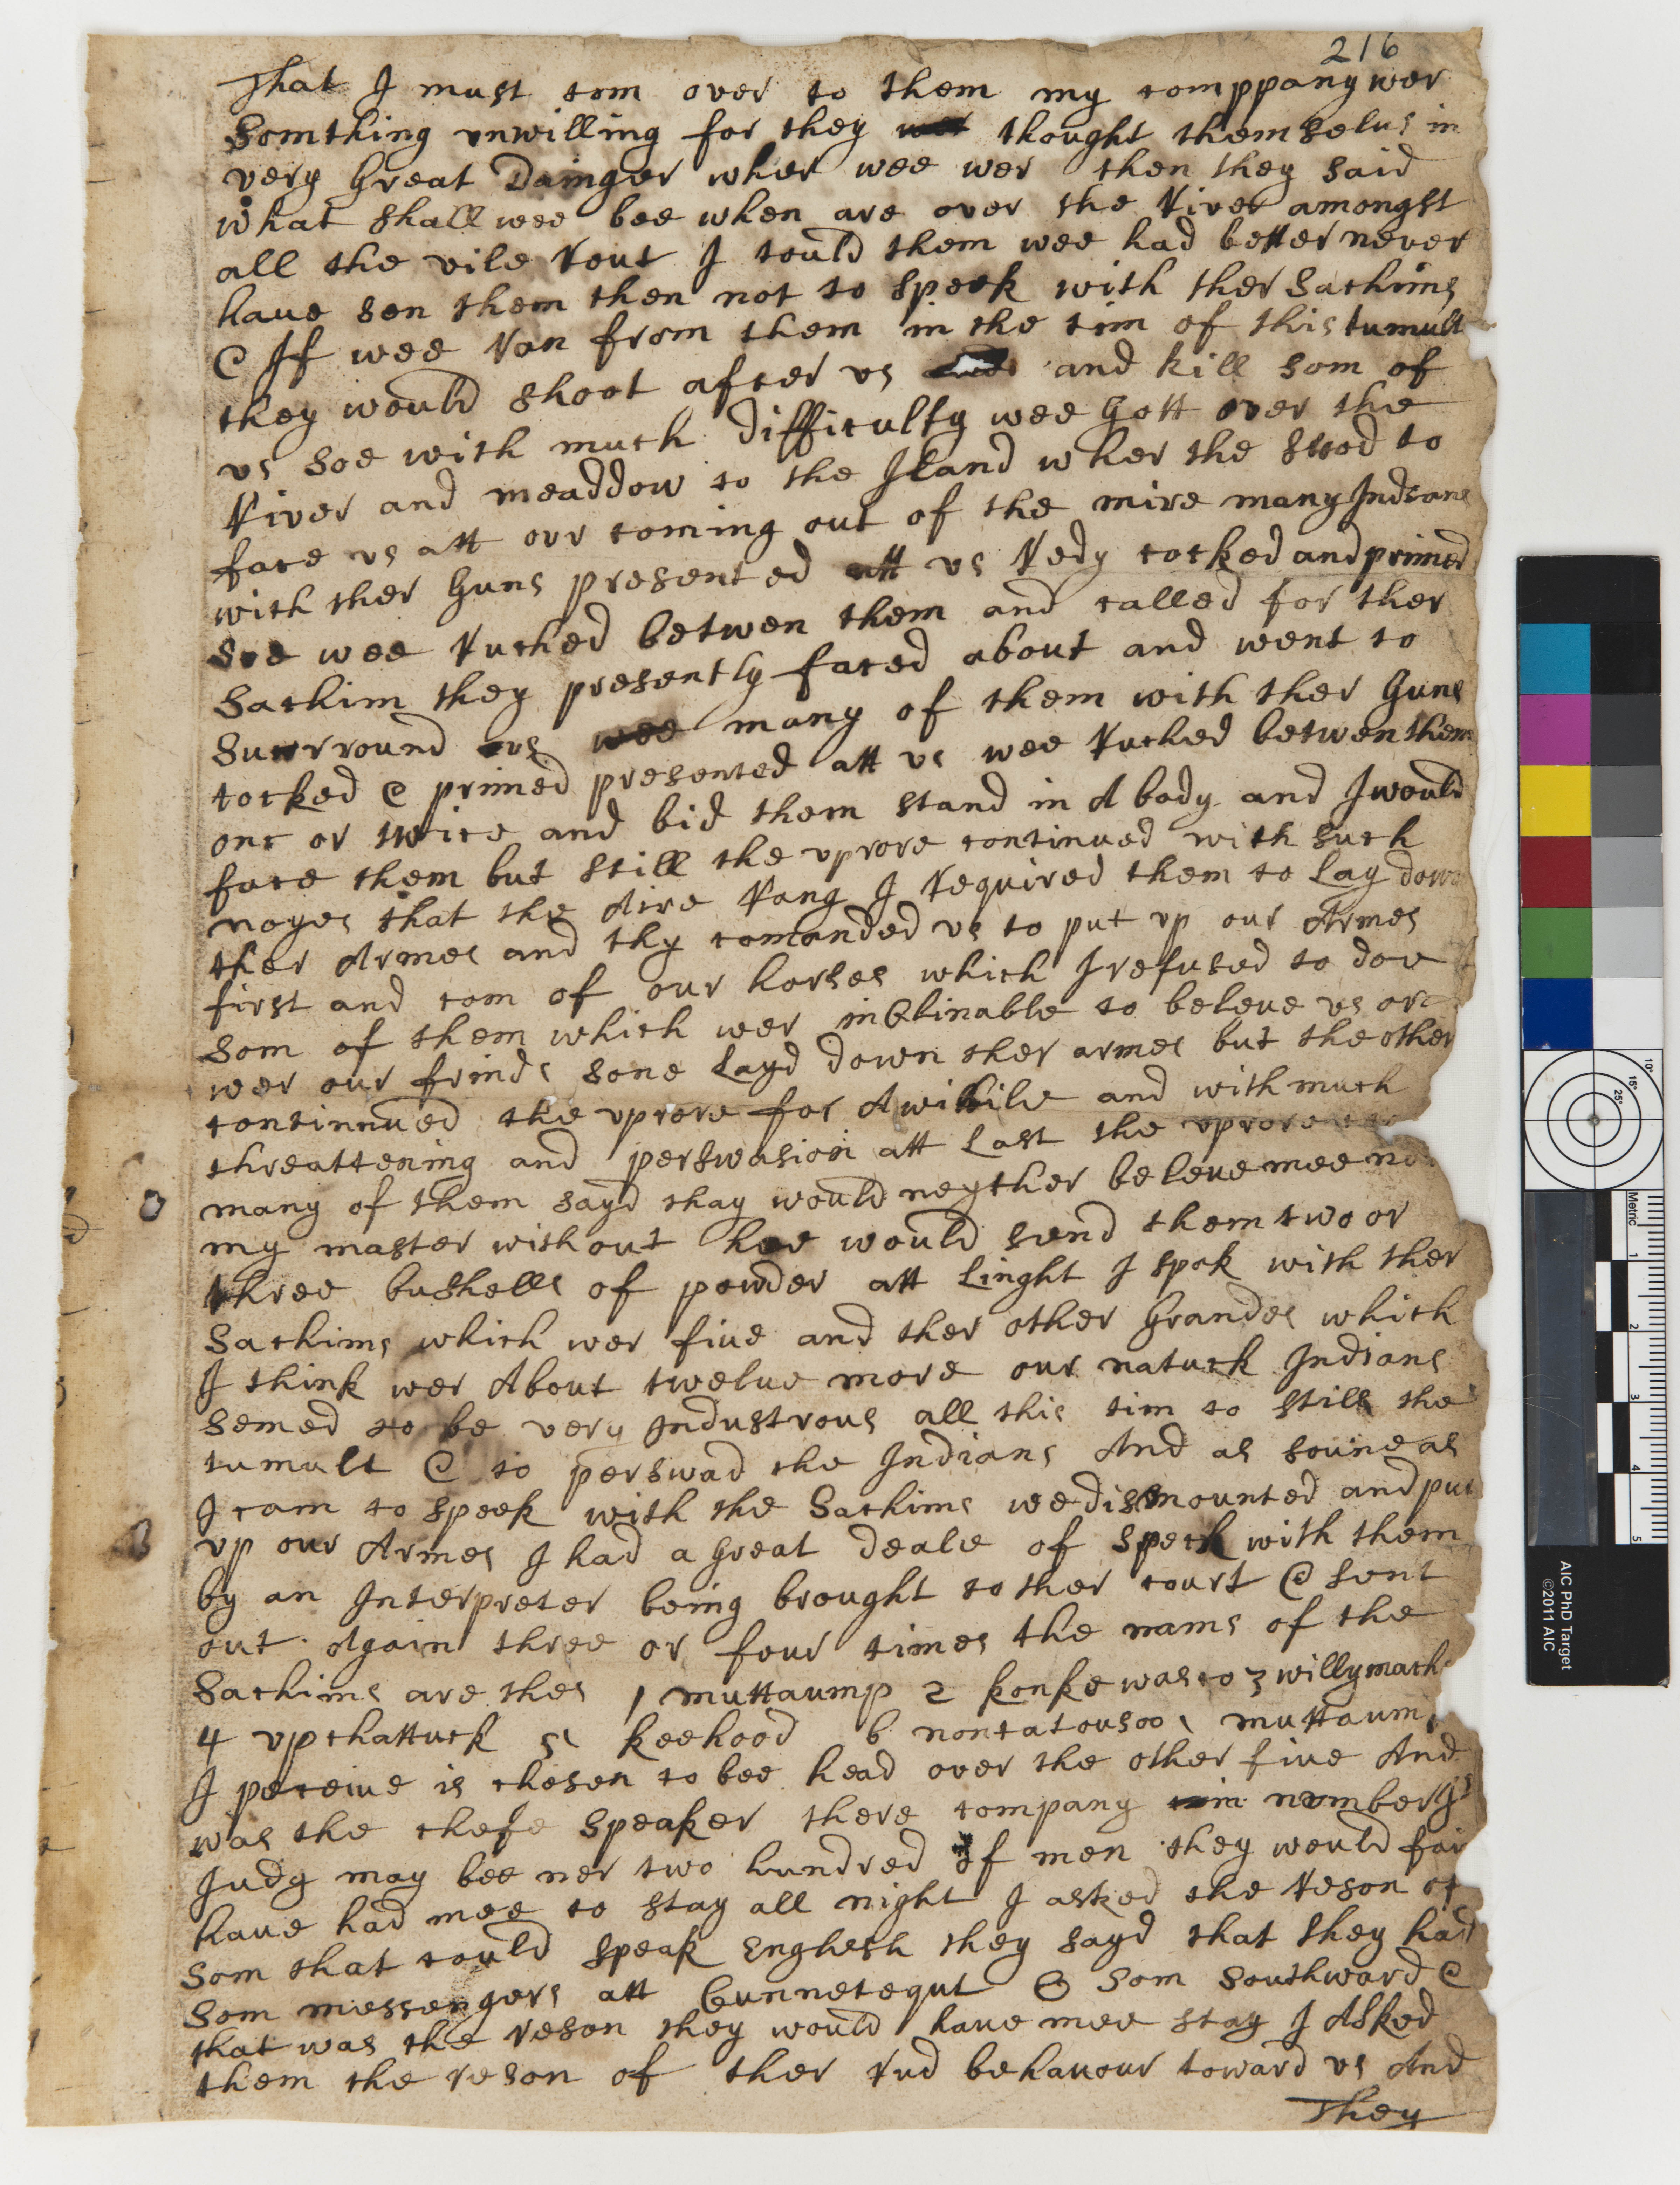 216
That I must com over to them my comppany wer
Somthing vnwilling for they wer thought themselus in
very Great Dainger wher wee wer then they said
what shall wee bee when are over the River amongst
all the vile Rout I tould them wee had better never
haue sen them then not to speek with ther Sachims
& If wee Ran from them in the tim of this tumult
they would shoot after vs and kill som of
vs soe with much difficulty wee Gott over the
River and meaddow to the Iland wher the stod to
face vs att our coming out of the mire many Indians
with ther Guns presented att vs Redy cocked and primed
soe wee Ruched betwen them and called for ther
Sachim they presently faced about and went to
Surrround vs wee many of them with ther Guns
cocked & primed presented att vs wee Ruched betwen them
onc or twice and bid them stand in A body and I would
face them but still the vprore continued with such
noyes that the Aire Rang I Required them to Lay down
ther Armes and thy comanded vs to put vp our Armes
first and com of our horses which I refused to doe
som of them which wer inClinable to beleue vs or
wer our frinds sone Layd down ther armes but the other
continnued the vprore for A while and with much
threattening and perswasion att Last the vprore
many of them sayd thay would neyther beleue mee
my master without hee would send them two or
three bushells of powder att Linght I spok with ther
Sachims which wer fiue and ther other Grandes which
I think wer About twelue more our natuck Indians
semed to be very Industrous all this tim to still the
tumult & to perswad the Indians And as soune as
I cam to speek with the Sachims we dismounted and put
vp our Armes I had a Great deale of speck with them
by an Interpreter being brought to ther court & sent
out Again three or four times the nams of the
Sachims are thes 1 muttaump 2 konkewasco 3 willymach
4 vpchattuck 5 keehood 6 noncatousoo muttaum
I perceiue is chosen to bee head over the other fiue And
was the chefe speaker there company in number
Iudg may bee ner two hundred of men they would
haue had mee to stay all night I asked the Reson of
som that could speak Englesh they sayd that they had
som messengers att Cunnetequt & som southward &
that was the Reson they would haue mee stay I Asked
them the reson of ther Rud behauour toward vs And
They